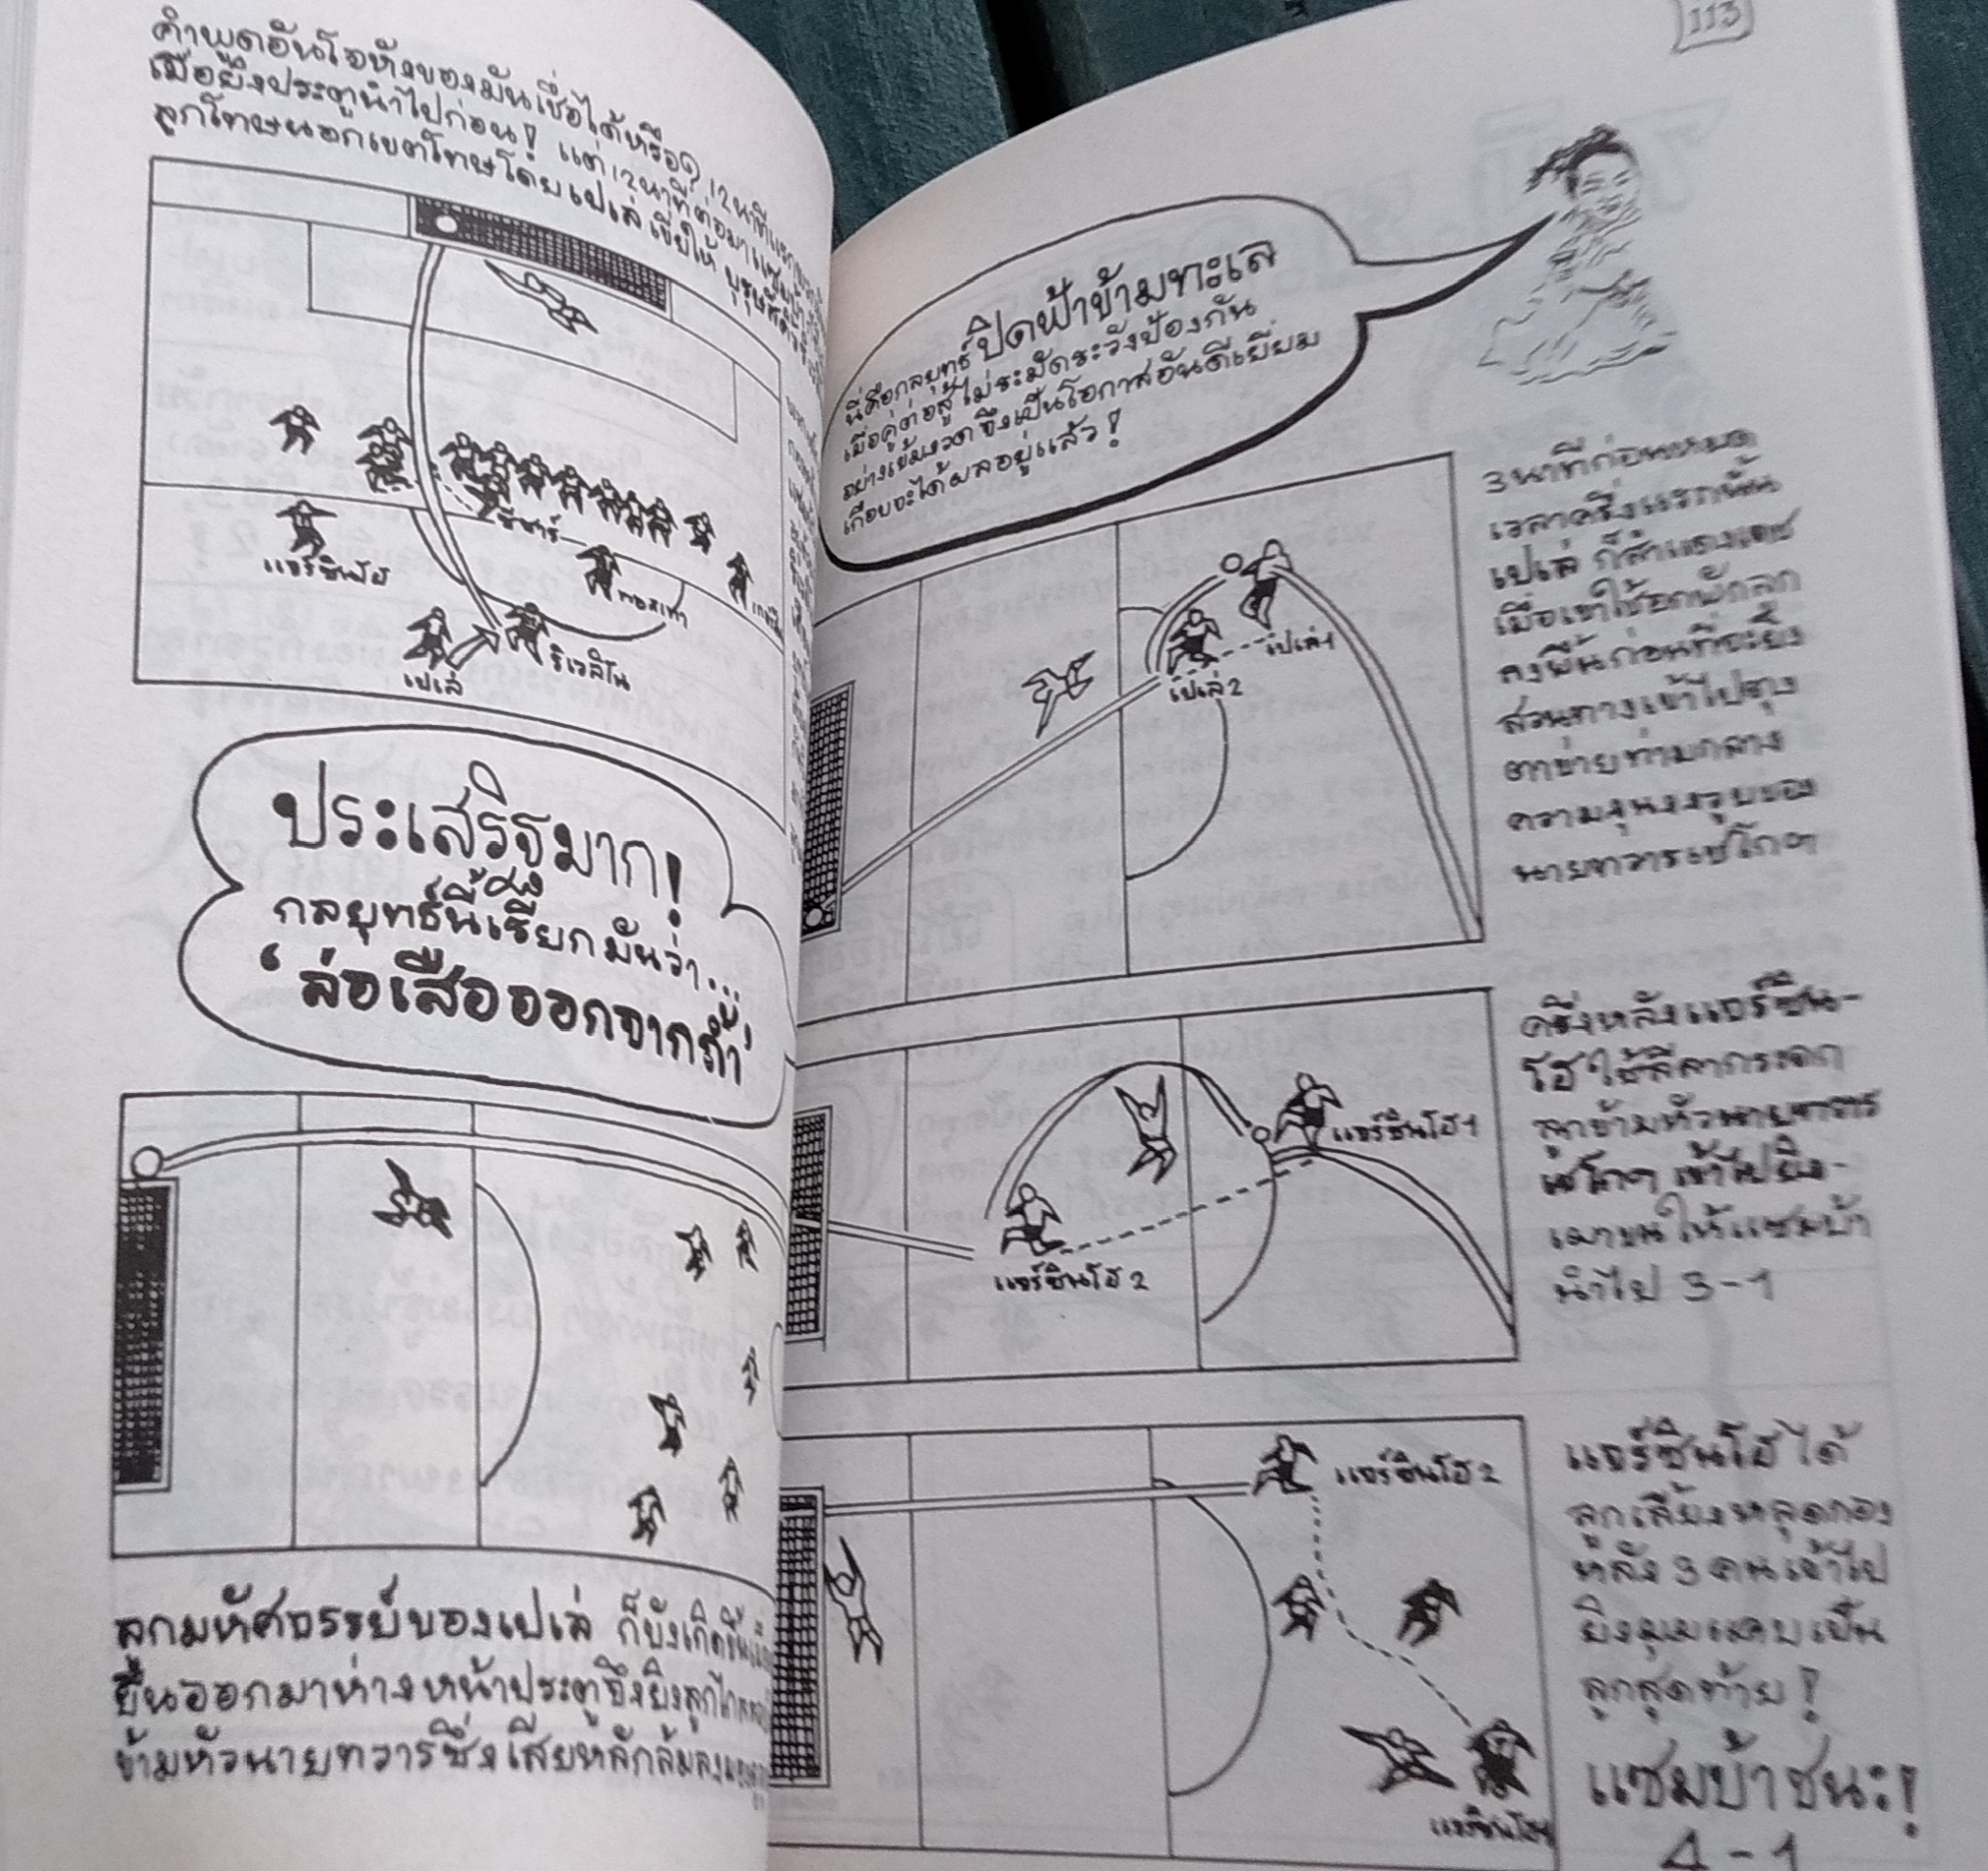 คำพูดอันโอหังของมันเชื่อได้หรือ? 12นาทีแรก
เมื่อยิงประตูนำไปก่อน! แต่ 12นาทีต่อมาแซมบ้า
ลูกโทษนอกเขตโทษโดยเปเล่ เขี่ยให้ บุรุษ
ซีซาร์
แจร์ซินโฮ
ทอสเทา
เปเล่
ริเวลิโน
ประเสริฐมาก!
กลยุทธ์นี้ซึ่งเรียกมันว่า...
'ล่อเสือออกจากถ้ำ'
ลูกมหัศจรรย์ของเปเล่ ก็ยังเกิดขึ้น
ยืนออกมาห่างหน้าประตูจึงยิงลูกไกล
ข้ามหัวนายทวารซึ่งเสียหลักล้มลง
113
นี่คือกลยุทธ์ ปิดฟ้าข้ามทะเล
เมื่อคู่ต่อสู้ไม่ระมัดระวังป้องกัน
อย่างเข้มงวด จึงเป็นโอกาสอันดีเยี่ยม
เกือบจะได้ผลอยู่แล้ว!
เปเล่1
เปเล่2
3นาทีก่อนหมด
เวลาครึ่งแรกนั้น
เปเล่ ก็สำแดงเดช
เมื่อเขาใช้อกพักลูก
ลงพื้นก่อนที่จะยิง
สวนทางเข้าไปซุง
ตาข่ายท่ามกลาง
ความงุนงงวูบของ
นายทวารเชโกฯ
แจร์ซินโฮ1
แจร์ซินโฮ2
ครึ่งหลังแจร์ซิน-
โฮ ใช้ลีลากระดก
ลูกข้ามหัวนายทวาร
เชโกฯ เข้าไปยิง-
เผาขนให้แซมบ้า
นำไป 3-1
แจร์ซินโฮ2
แจร์ซินโฮ1
แจร์ซินโฮได้
ลูกเลี้ยงหลุดกอง
หลัง3คนเข้าไป
ยิงมุมแคบเป็น
ลูกสุดท้าย!
แซมบ้าชนะ!
4-1